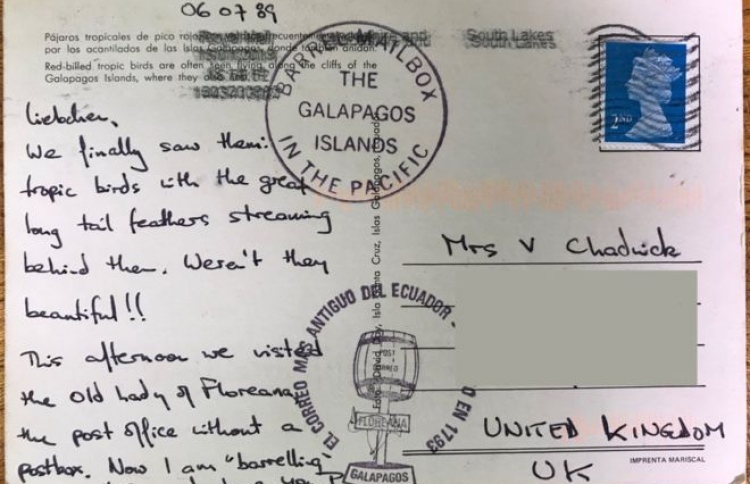 06 07 89
Pájaros tropicales de pico
por los acantilados de las Islas Galápagos, donde también anidan.
Red-billed tropic birds are often seen flying along the cliffs of the
Galapagos Islands, where they
South Lakes
BARREL MAILBOX
THE
GALAPAGOS
ISLANDS
IN THE PACIFIC
2ND
Liebchen,
We finally saw them:
tropic birds with the great
long tail feathers streaming
behind them. Weren't they
beautiful!!
This afternoon we visited
the old lady of Floreana,
the post office without a
postbox. Now I am "barrelling"
Isla Santa Cruz, Islas Galápagos, Ecuador
EL CORREO MAS ANTIGUO DEL ECUADOR
O EN 1793
POST
CORREO
FLOREANA
GALAPAGOS
Mrs V Chadwick
UNITED KINGDOM
UK
IMPRENTA MARISCAL